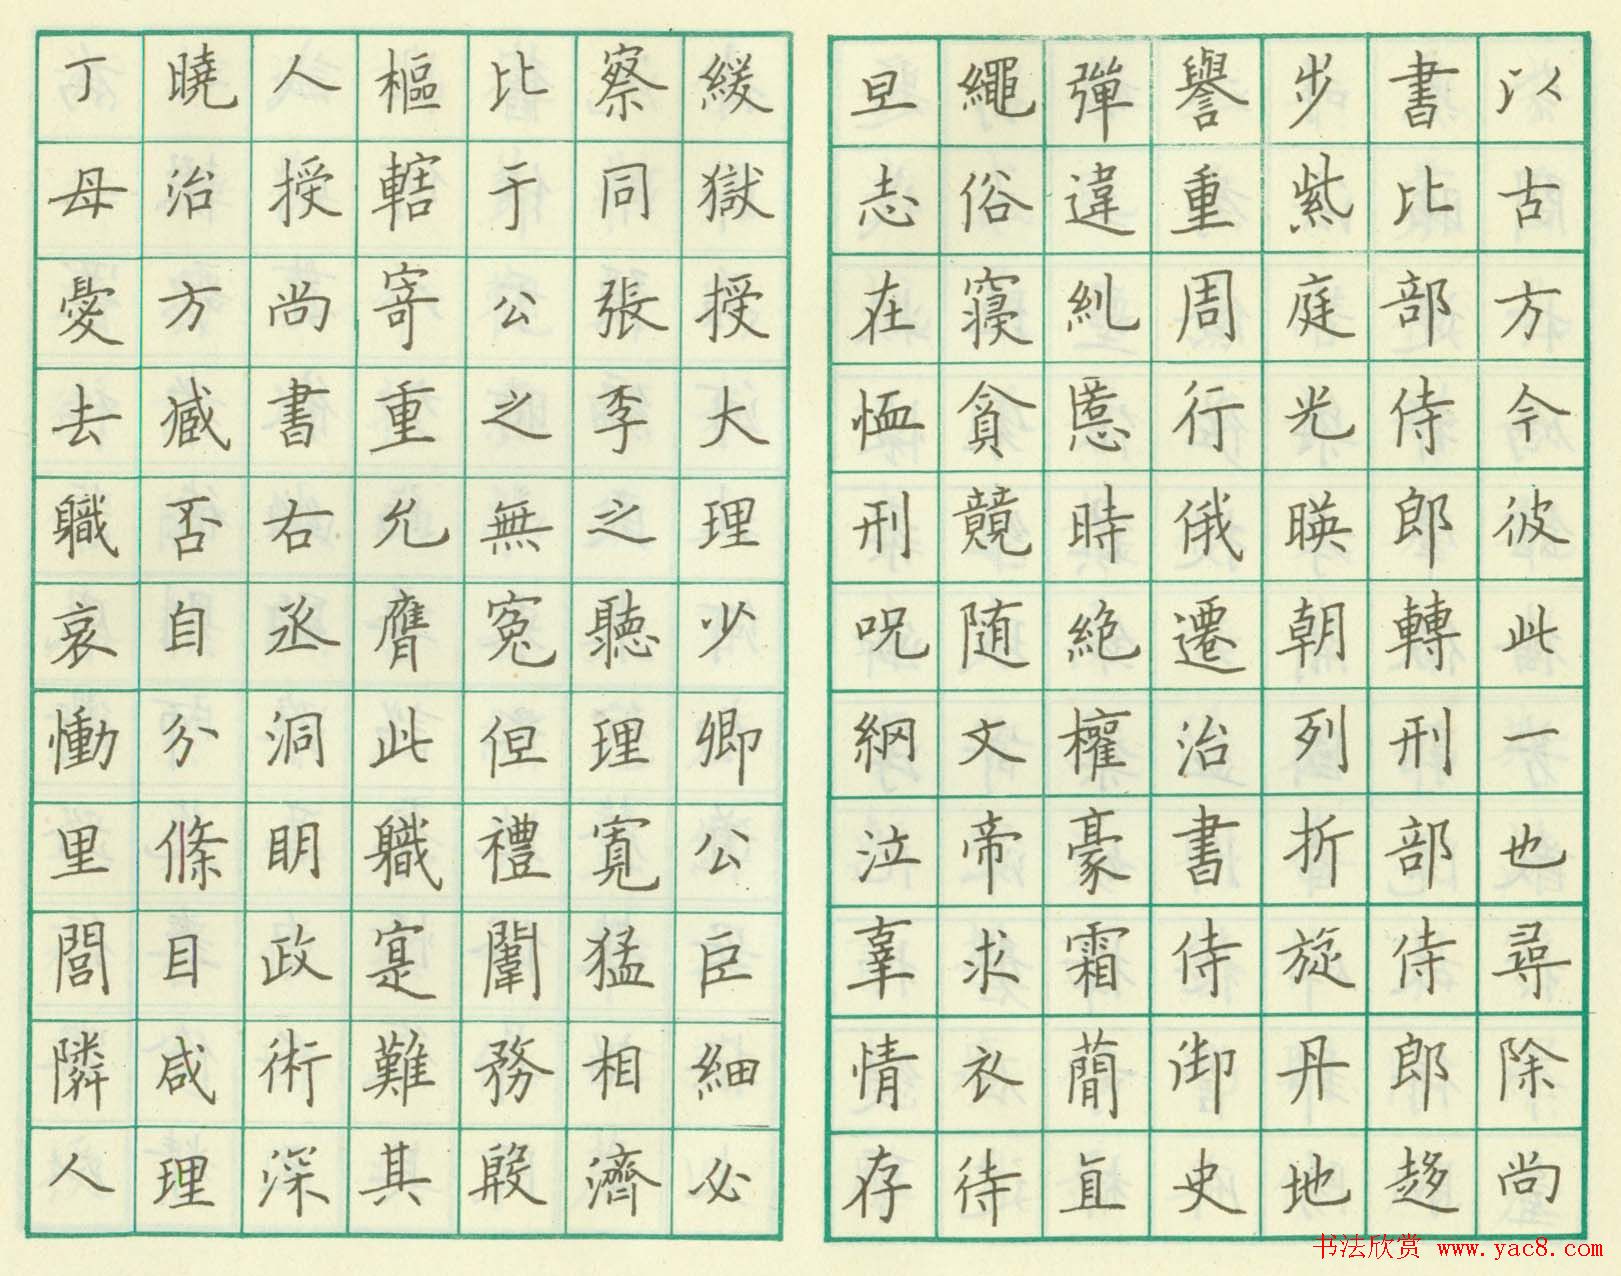 以古方今彼此一也尋除尚
書比部侍郎轉刑部侍郎趍
步紫庭光暎朝列折旋丹地
譽重周行俄遷治書侍御史
彈違糺慝時絶權豪霜簡直
繩俗寑貪競随文帝求衣待
旦志在恤刑呪網泣辜情存
緩獄授大理少卿公巨細必
察同張季之聽理寬猛相濟
比于公之無冤但禮闈務殷
樞轄寄重允膺此職寔難其
人授尚書右丞洞明政術深
曉治方臧否自分條目咸理
丁母憂去職哀慟里閭隣人
书法欣赏 www.yac8.com